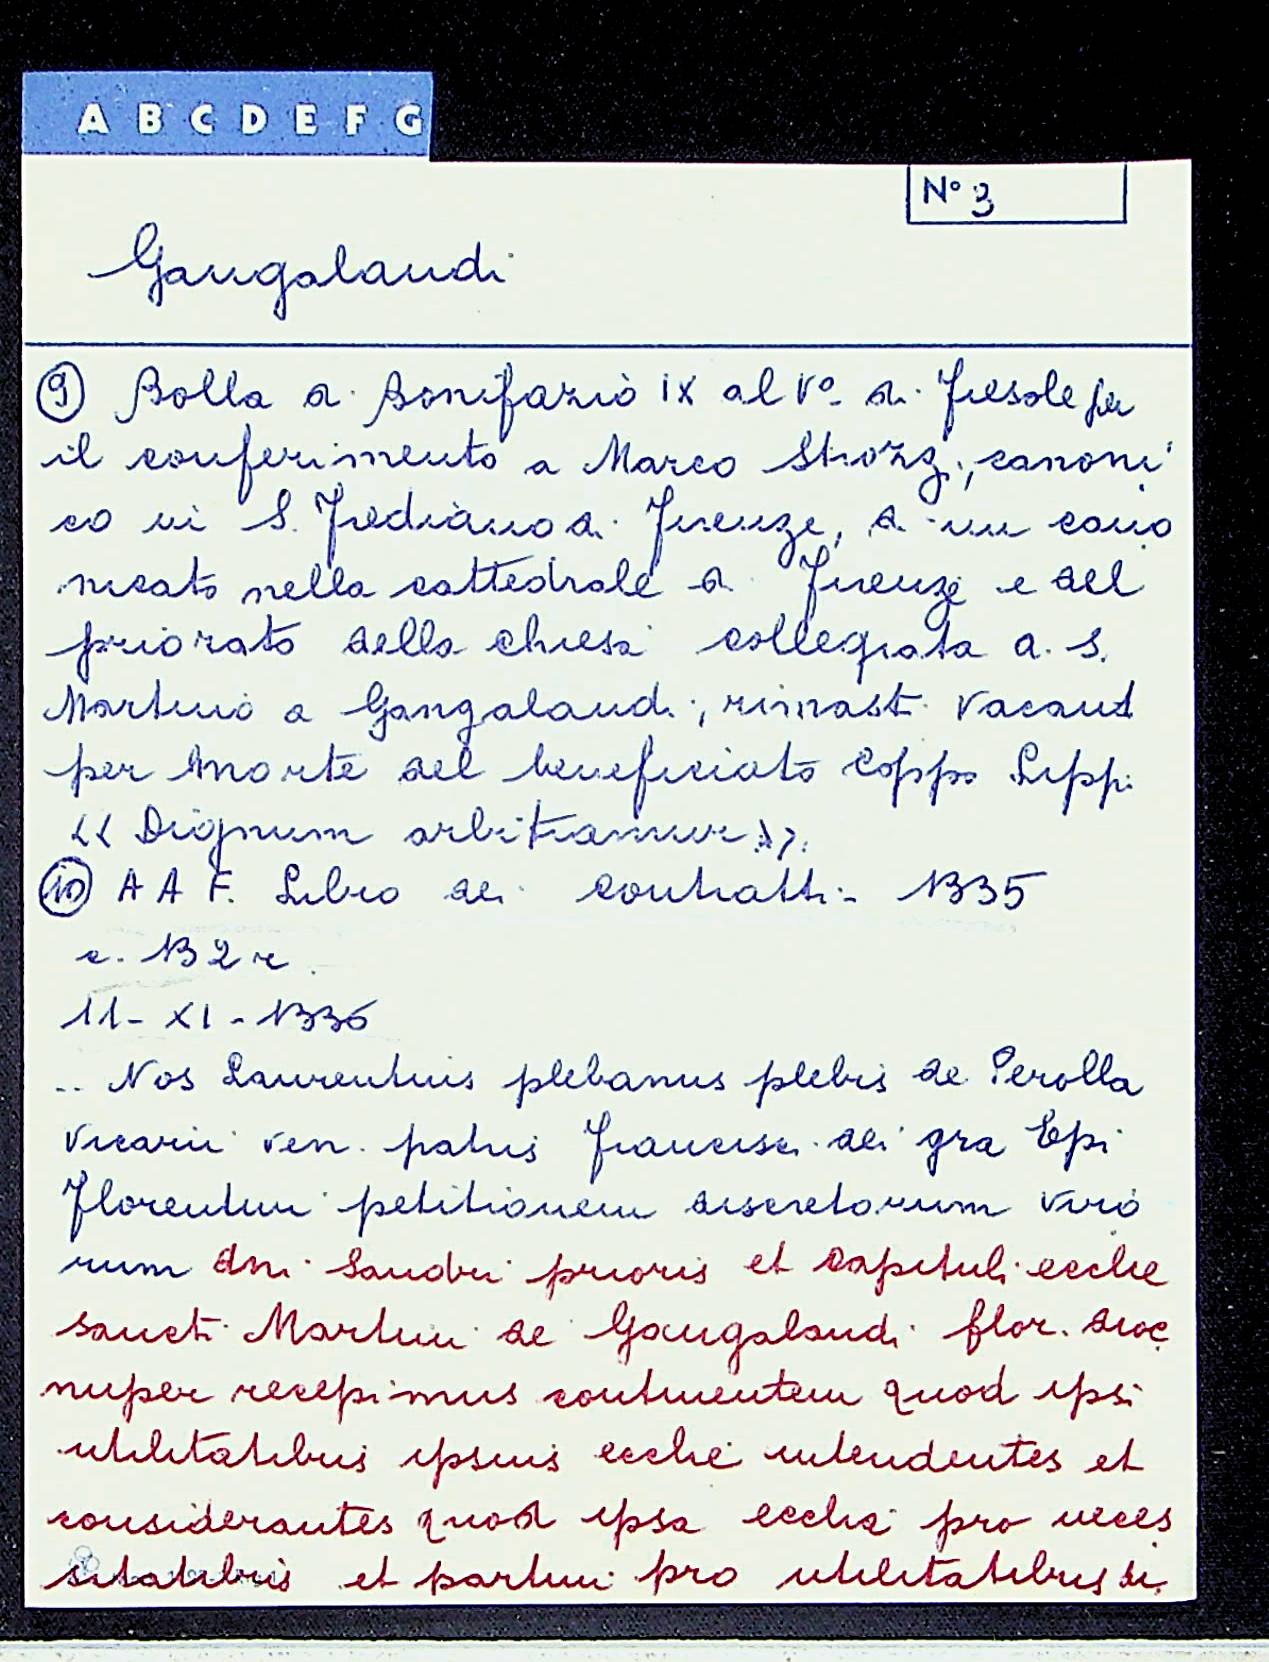 A B C D E F G
N° 3
Gangalandi
9 Bolla di Bonifazio IX al V° di Fiesole per
il conferimento a Marco Strozzi, canoni
co in S. Frediano di Firenze, di un cano
nicato nella cattedrale di Firenze e del
priorato della chiesa collegiata di S.
Martino a Gangalandi, rimasti vacanti
per morte del beneficiato Coppo Lippi
<< Dignum arbitramur >>.
10 A A F. Libro dei contratti - 1335
c. 132 r
11 - XI - 1336
.. Nos Laurentius plebanus plebis de Perolla
Vicarii ven. patris Francisci dei gra Epi
Florentini petitionem discretorum viro
rum dni Sandri prioris et capituli ecclie
sancti Martini de Gangalandi flor. dioc
nuper recepimus continentem quod ipsi
utilitatibus ipsius ecclie intendentes et
considerantes quod ipsa ecclia pro neces
sitatibus et partim pro utilitatibus